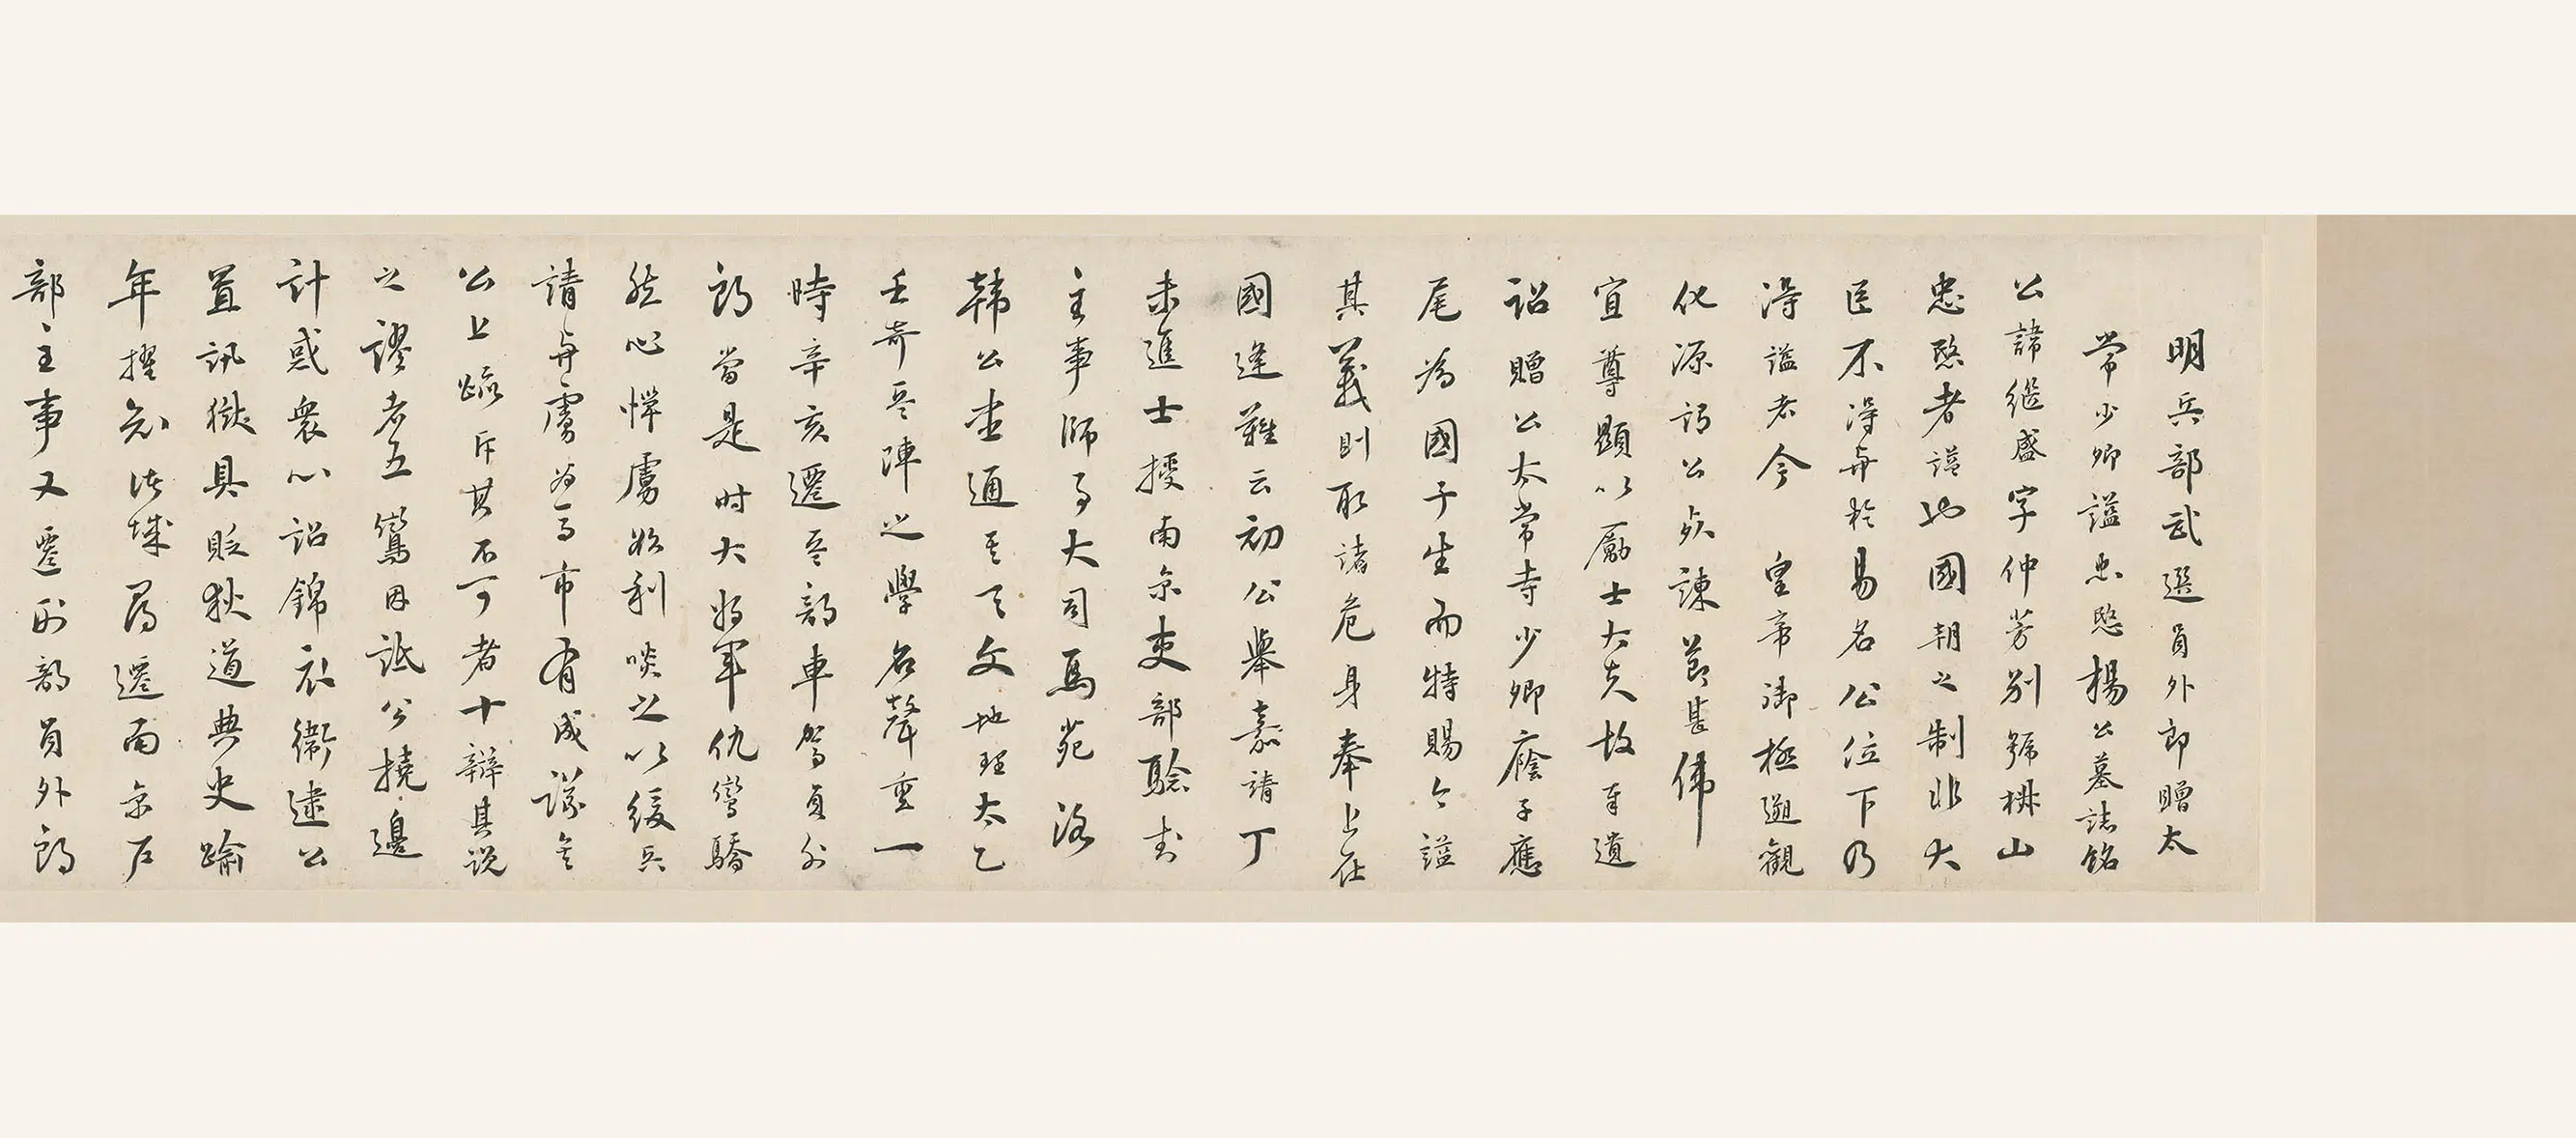 明兵部武選員外郎贈太
常少卿謚忠愍楊公墓誌銘
公諱繼盛字仲芳別號椒山
忠愍者謚也國朝之制非大
臣不得與於易名公位下乃
得謚者今皇帝御極遡觀
化源謂公死諫節甚偉
宜尊顯以勵士大夫故奉遺
詔贈公太常寺少卿廕子應
尾為國子生而特賜今謚
其義則取諸危身奉上在
國逢難云初公舉嘉靖丁
未進士授南京吏部驗封
主事師事大司馬苑洛
韓公盡通其天文地理太乙
壬奇兵陣之學名聲重一
時辛亥遷兵部車駕員外
郎當是時大將軍仇鸞驕
然心憚虜欲利啖之以緩兵
請與虜為馬市有成議矣
公上疏斥其不可者十辯其說
之謬者五鸞因詆公撓邊
計惑衆心詔錦衣衞逮公
置訊獄具貶狄道典史踰
年擢知諸城尋遷南京戶
部主事又遷刑部員外郎